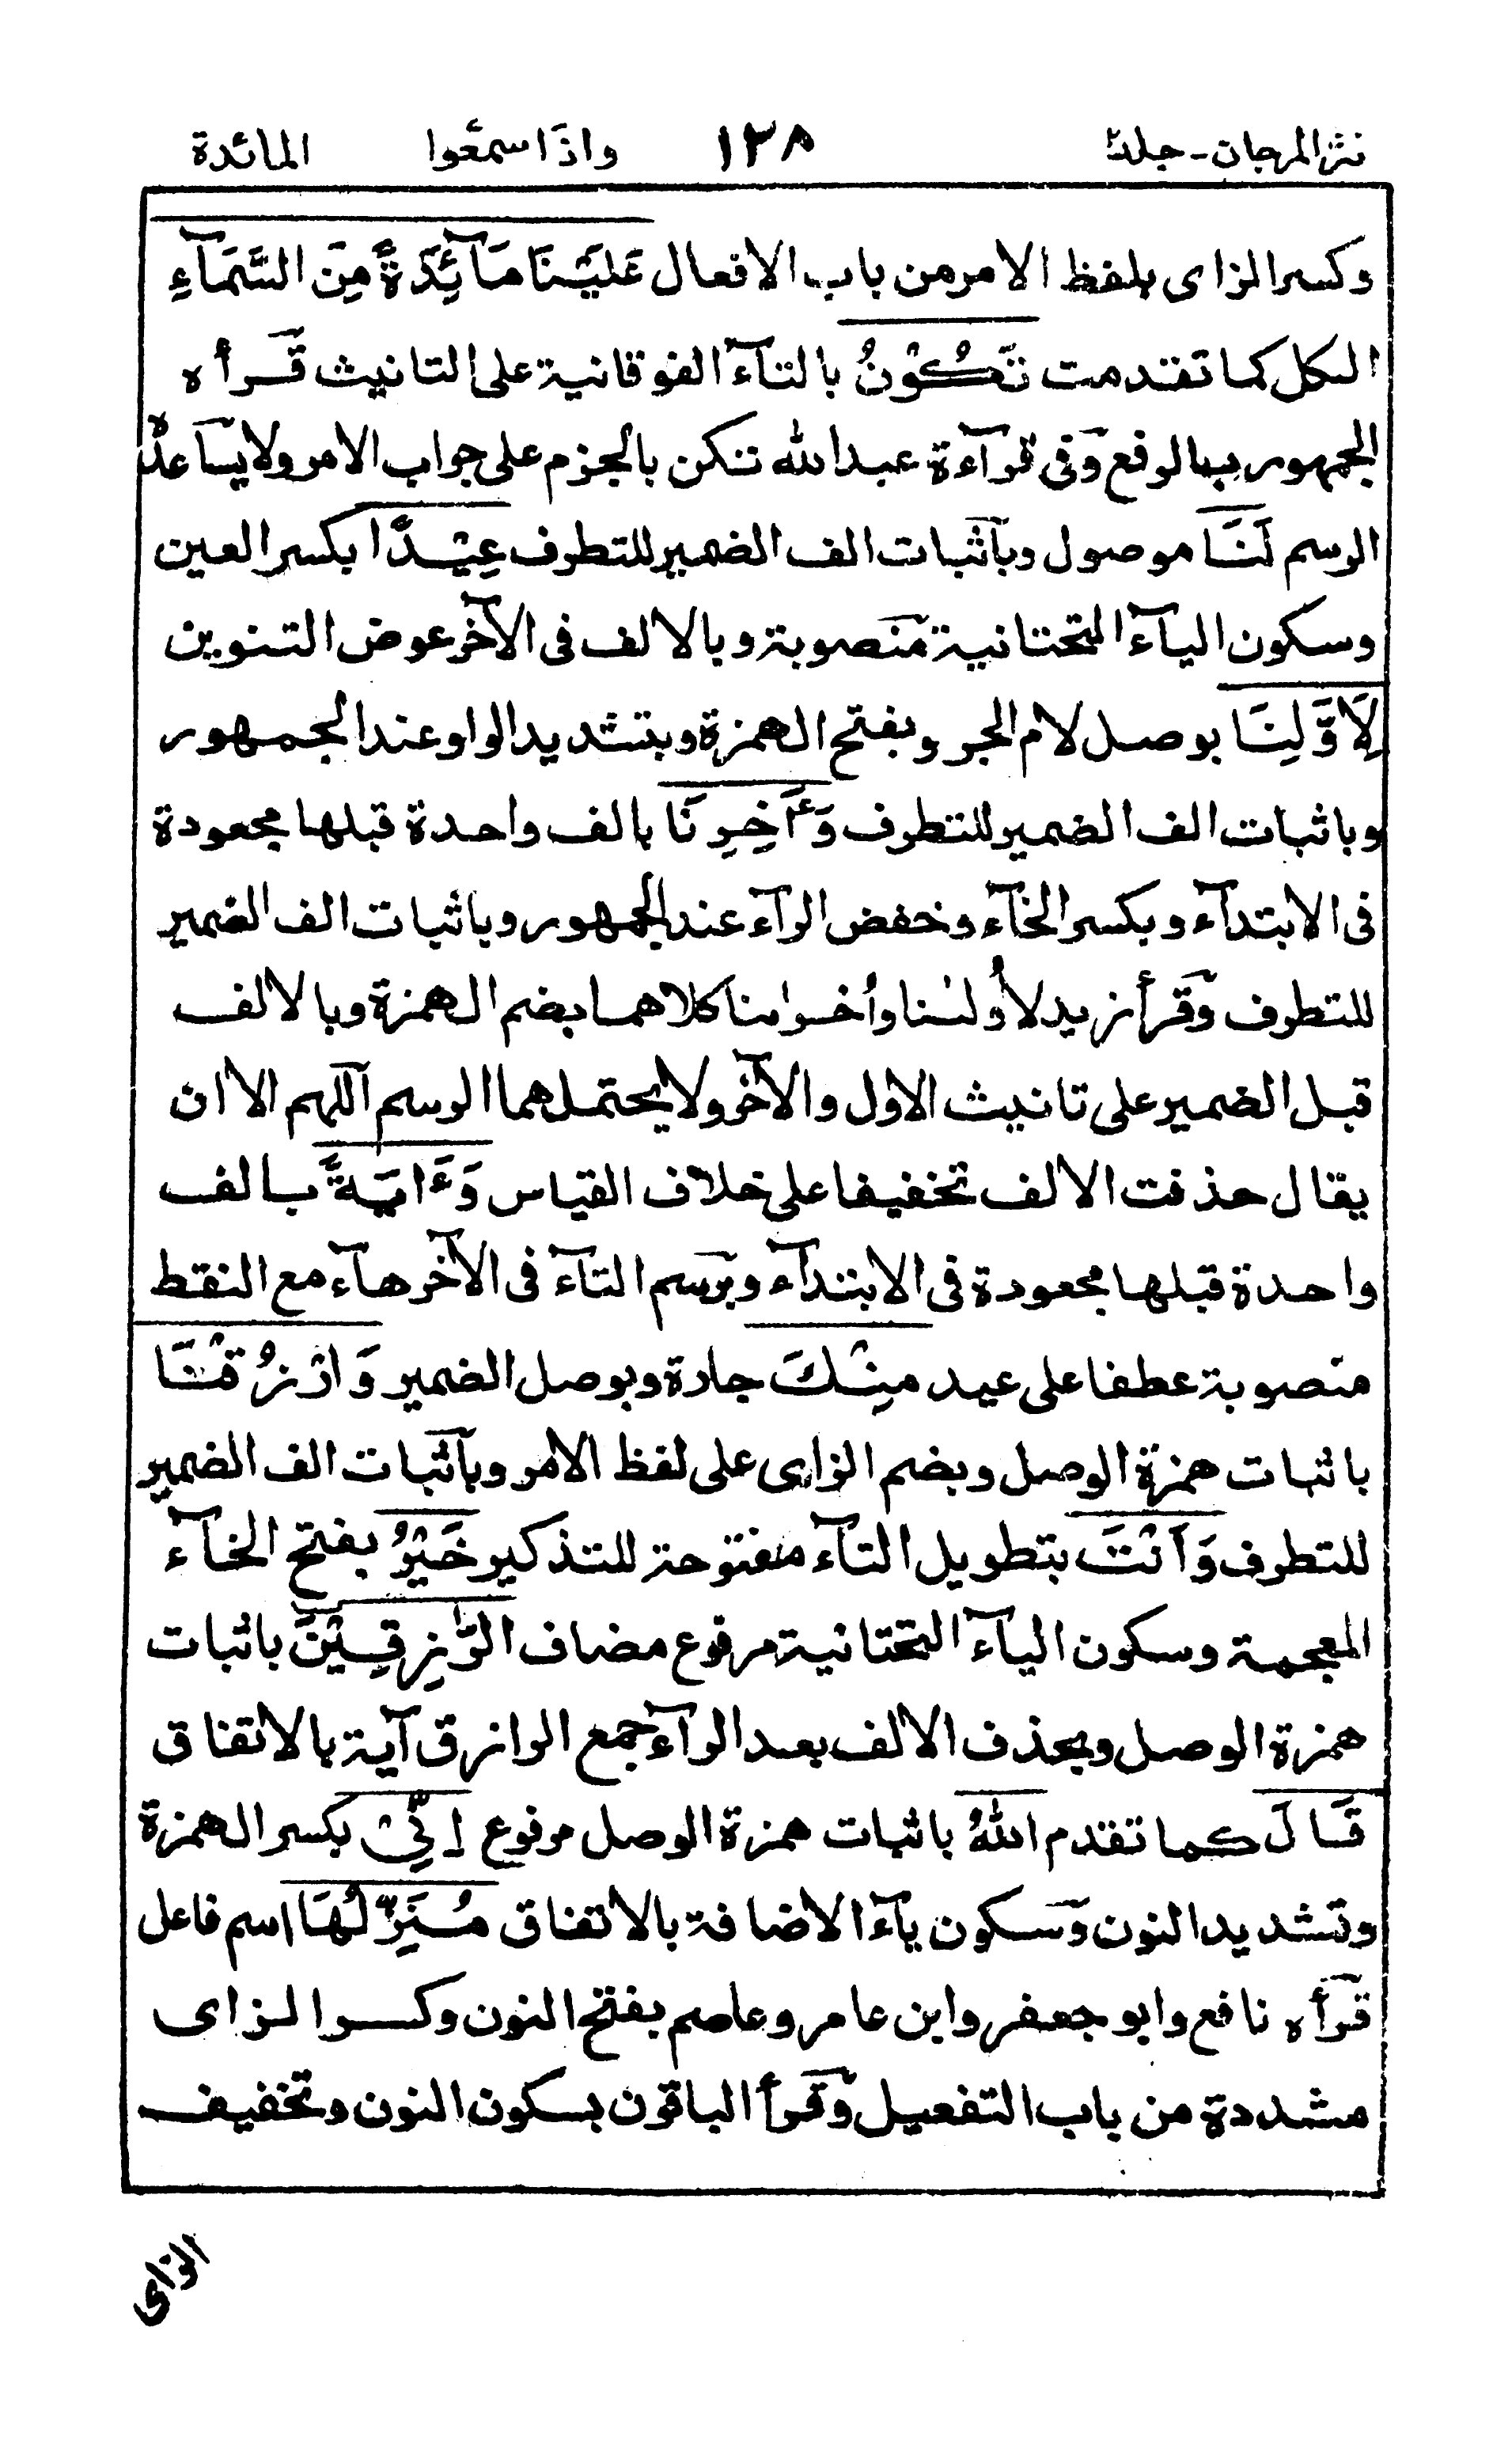 نثر المرجان - جلد ١٣٨ واذا سمعوا المائدة
وكسر الزاى بلفظ الامر من باب الافعال عَلَيْنَا مَآئِدَةً مِّنَ السَّمَآءِ
الكل كما تقدمت تَكُوْنُ بالتآء الفوقانية على التانيث قرأه
الجمهور بالرفع وفى قرآءة عبد الله تكن بالجزم على جواب الامر ولا يساعده
الرسم لَنَا موصول وباثبات الف الضمير للتطرف عِيْدًا بكسر العين
وسكون اليآء التحتانية منصوبة وبالالف فى الآخر عوض التنوين
لِاَوَّلِنَا بوصل لام الجر وبفتح الهمزة وبتشديد الواو عند الجمهور
وباثبات الف الضمير للتطرف وَءَاخِرِنَا بالف واحدة قبلها مجعودة
فى الابتدآء وبكسر الخآء وخفض الرآء عند الجمهور وباثبات الف الضمير
للتطرف وقرأ زيد لأولٰنا وأخرٰنا كلاهما بضم الهمزة وبالالف
قبل الضمير على تانيث الاول والآخر ولا يحتملهما الرسم اللهم الا ان
يقال حذفت الالف تخفيفا على خلاف القياس وَءَايَةً بالف
واحدة قبلها مجعودة فى الابتدآء وبرسم التآء فى الآخر هآء مع النقط
منصوبة عطفا على عيد مِنْكَ جارة وبوصل الضمير وَارْزُقْنَا
باثبات همزة الوصل وبضم الزاى على لفظ الامر وباثبات الف الضمير
للتطرف وَاَنْتَ بتطويل التآء مفتوحة للتذكير خَيْرُ بفتح الخآء
المعجمة وسكون اليآء التحتانية مرفوع مضاف الرّٰزِقِيْنَ باثبات
همزة الوصل وبحذف الالف بعد الرآء جمع الرازق آية بالاتفاق
قَالَ كما تقدم اللّٰهُ باثبات همزة الوصل مرفوع اِنِّيْ بكسر الهمزة
وتشديد النون وسكون يآء الاضافة بالاتفاق مُنَزِّلُهَا اسم فاعل
قرأه نافع وابو جعفر وابن عامر وعاصم بفتح النون وكسر الزاى
مشددة من باب التفعيل وقرأ الباقون بسكون النون وتخفيف
الزاى